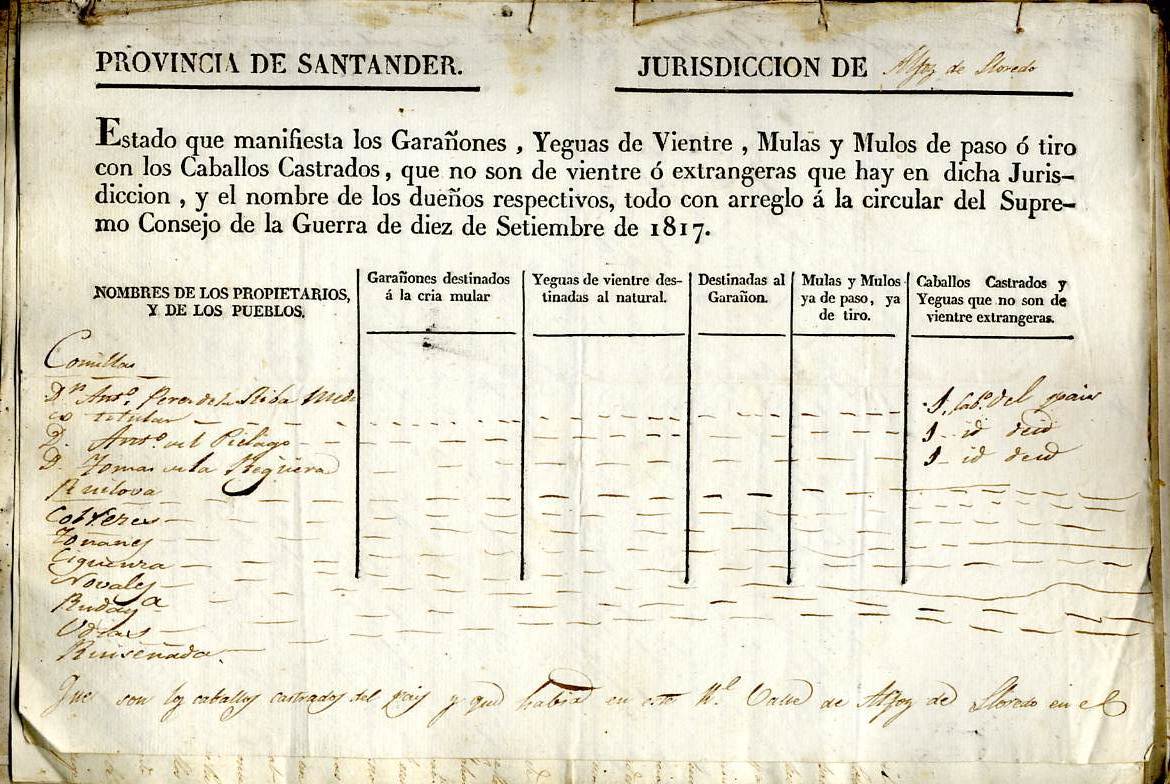 PROVINCIA DE SANTANDER. JURISDICCION DE Alfoz de Lloredo
Estado que manifiesta los Garañones , Yeguas de Vientre , Mulas y Mulos de paso ó tiro
con los Caballos Castrados, que no son de vientre ó extrangeras que hay en dicha Juris-
diccion , y el nombre de los dueños respectivos, todo con arreglo á la circular del Supre-
mo Consejo de la Guerra de diez de Setiembre de 1817.
NOMBRES DE LOS PROPIETARIOS,
Y DE LOS PUEBLOS.
Garañones destinados
á la cria mular
Yeguas de vientre des-
tinadas al natural.
Destinadas al
Garañon.
Mulas y Mulos
ya de paso, ya
de tiro.
Caballos Castrados y
Yeguas que no son de
vientre extrangeras.
Comillas
Dn Anto. Perez de la Riba Medi
co titular 1. cabo. del pais
D. Anto. del Pielago 1 - id de id
D. Tomas de la Reguera 1 - id de id
Ruilova
Cobreces
Toñanes
Ciguenza
Novales
Rudaga
Udias
Ruiseñada
Que son los caballos castrados del pais y que habia en este Rl. Valle de Alfoz de Lloredo en el